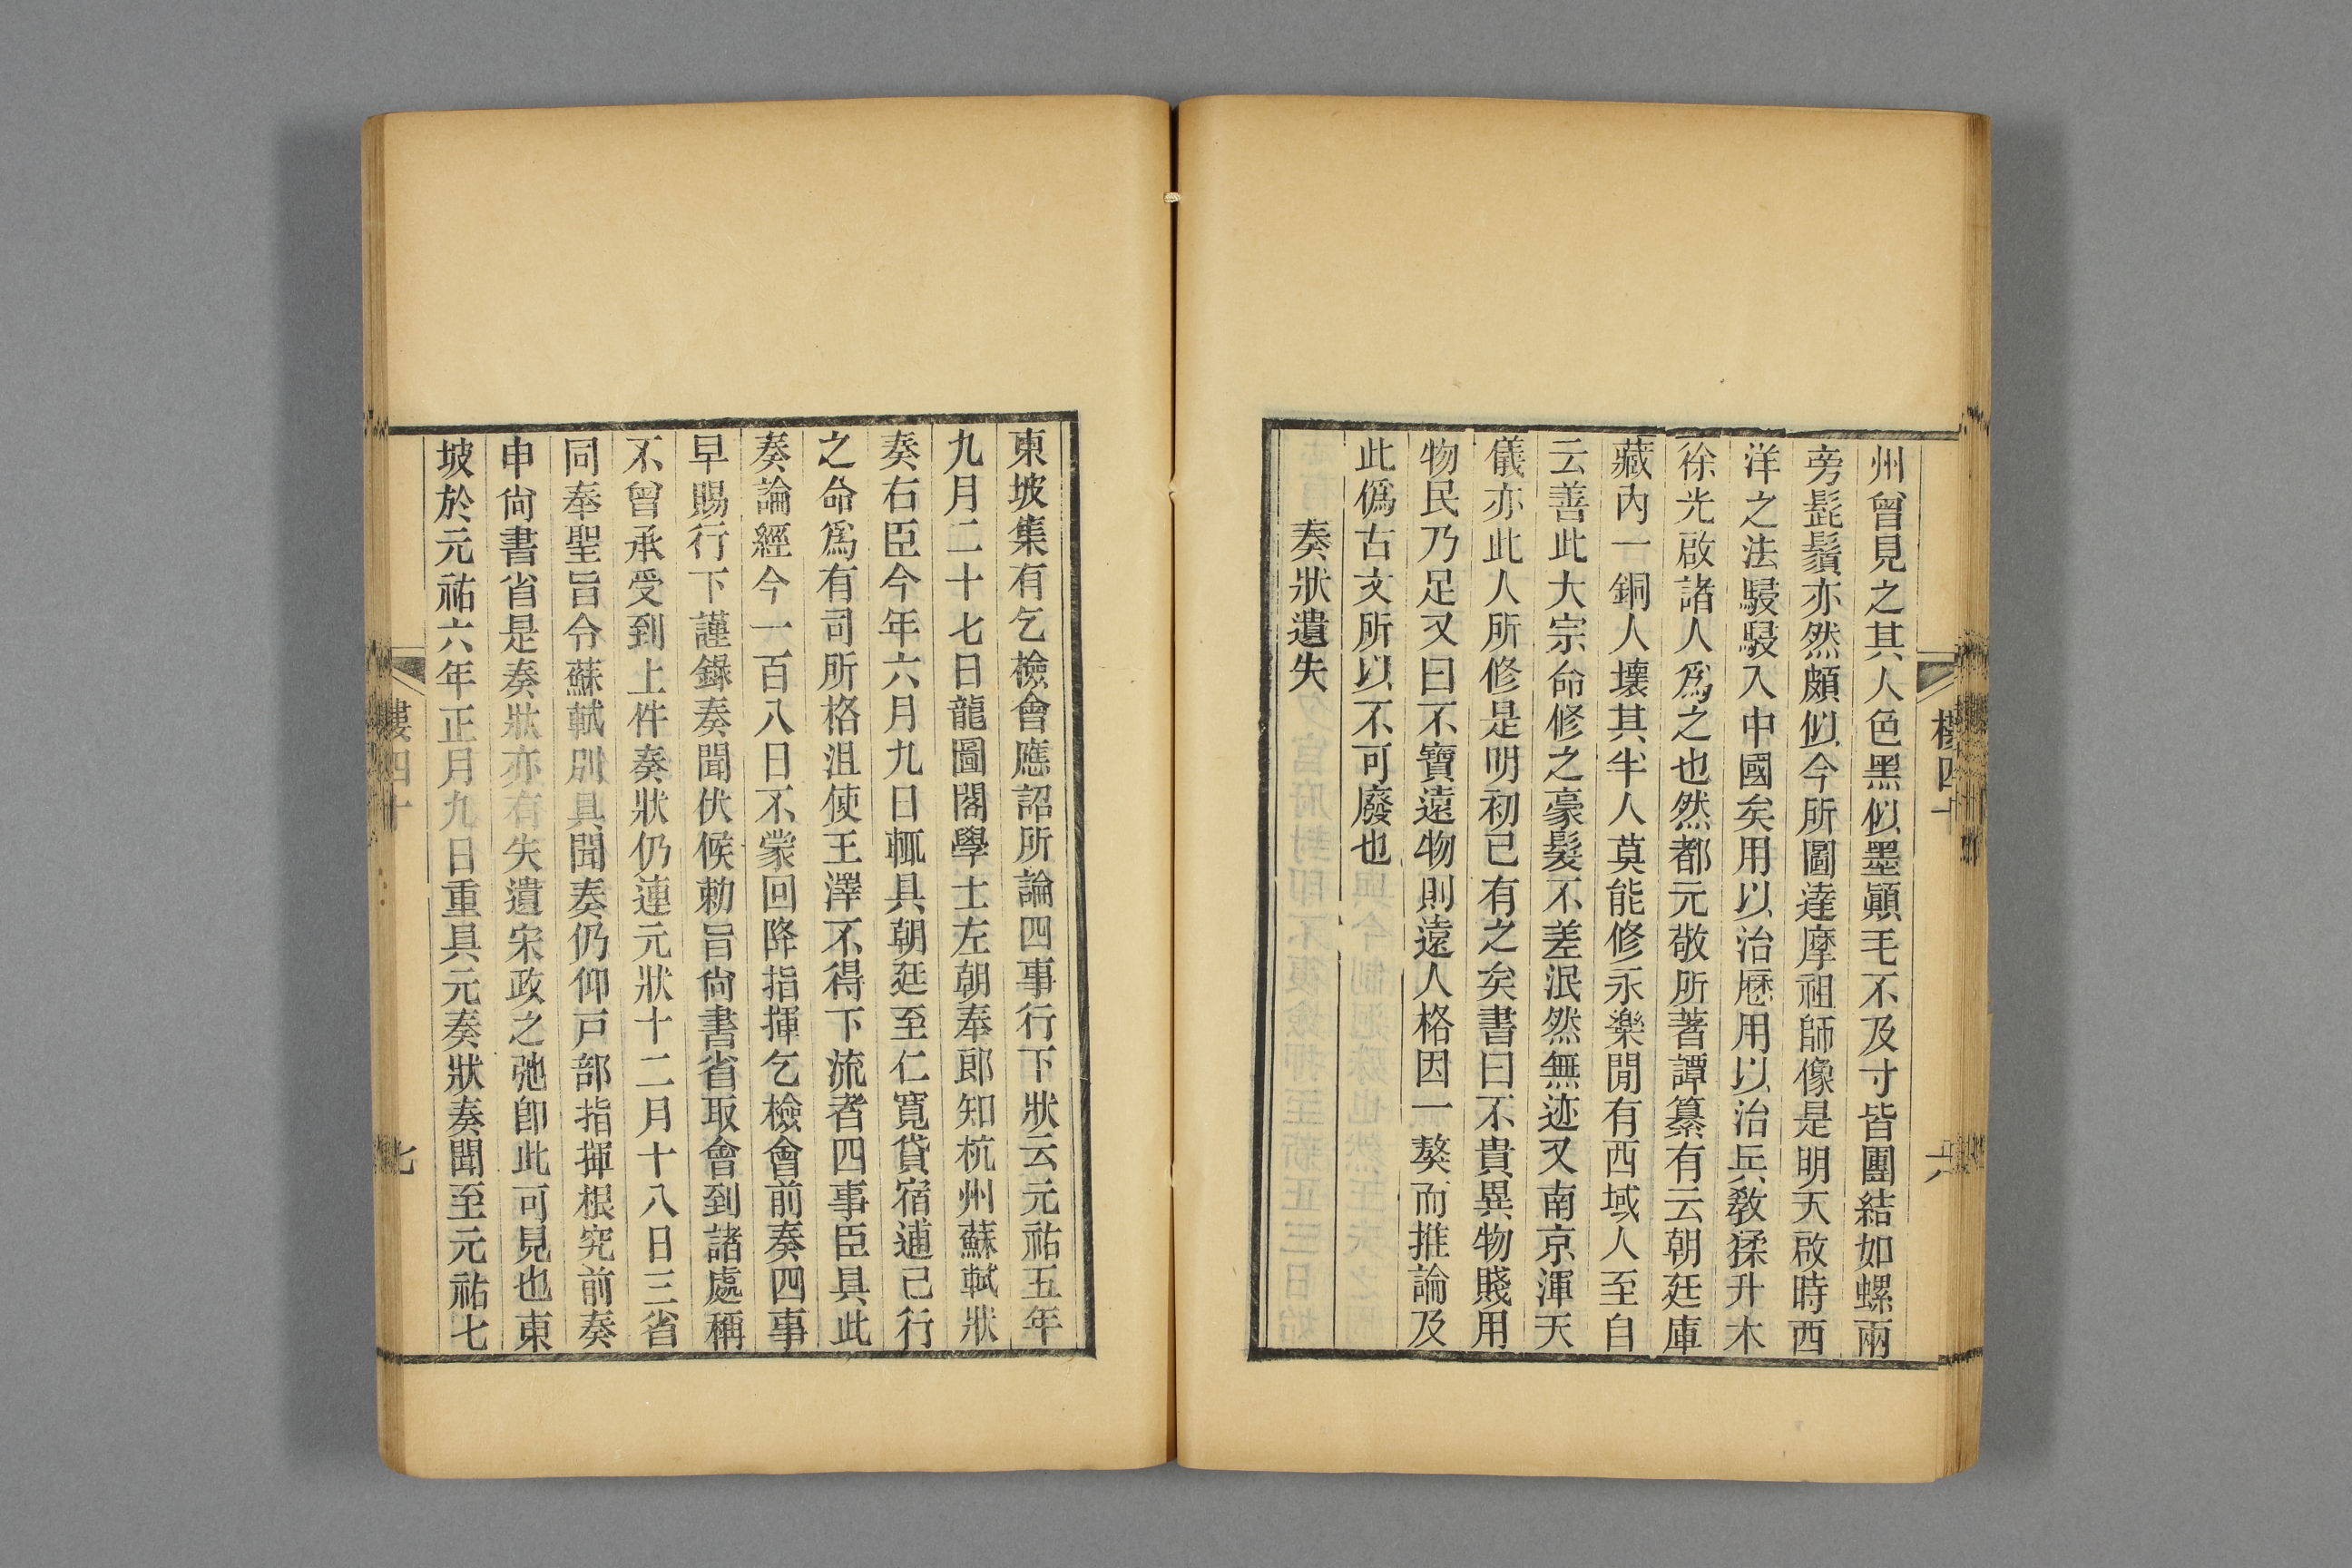 州曾見之其人色黑似墨顚毛不及寸皆團結如螺兩
旁髭鬚亦然頗似今所圖達摩祖師像是明天啟時西
洋之法駸駸入中國矣用以治厯用以治兵教猱升木
徐光啟諸人爲之也然都元敬所著譚纂有云朝廷庫
藏內一銅人壞其半人莫能修永樂閒有西域人至自
云善此大宗命修之豪髮不差泯然無迹又南京渾天
儀亦此人所修是明初已有之矣書曰不貴異物賤用
物民乃足又曰不寶遠物則遠人格因一獒而推論及
此僞古文所以不可廢也
奏狀遺失
東坡集有乞檢會應詔所論四事行下狀云元祐五年
九月二十七日龍圖閣學士左朝奉郎知杭州蘇軾狀
奏右臣今年六月九日輒具朝廷至仁寬貸宿逋已行
之命爲有司所格沮使王澤不得下流者四事臣具此
奏論經今一百八日不蒙回降指揮乞檢會前奏四事
早賜行下謹錄奏聞伏候勅旨尙書省取會到諸處稱
不曾承受到上件奏狀仍連元狀十二月十八日三省
同奉聖旨令蘇軾別具聞奏仍仰戸部指揮根究前奏
申尙書省是奏狀亦有失遺宋政之弛卽此可見也東
坡於元祐六年正月九日重具元奏狀奏聞至元祐七